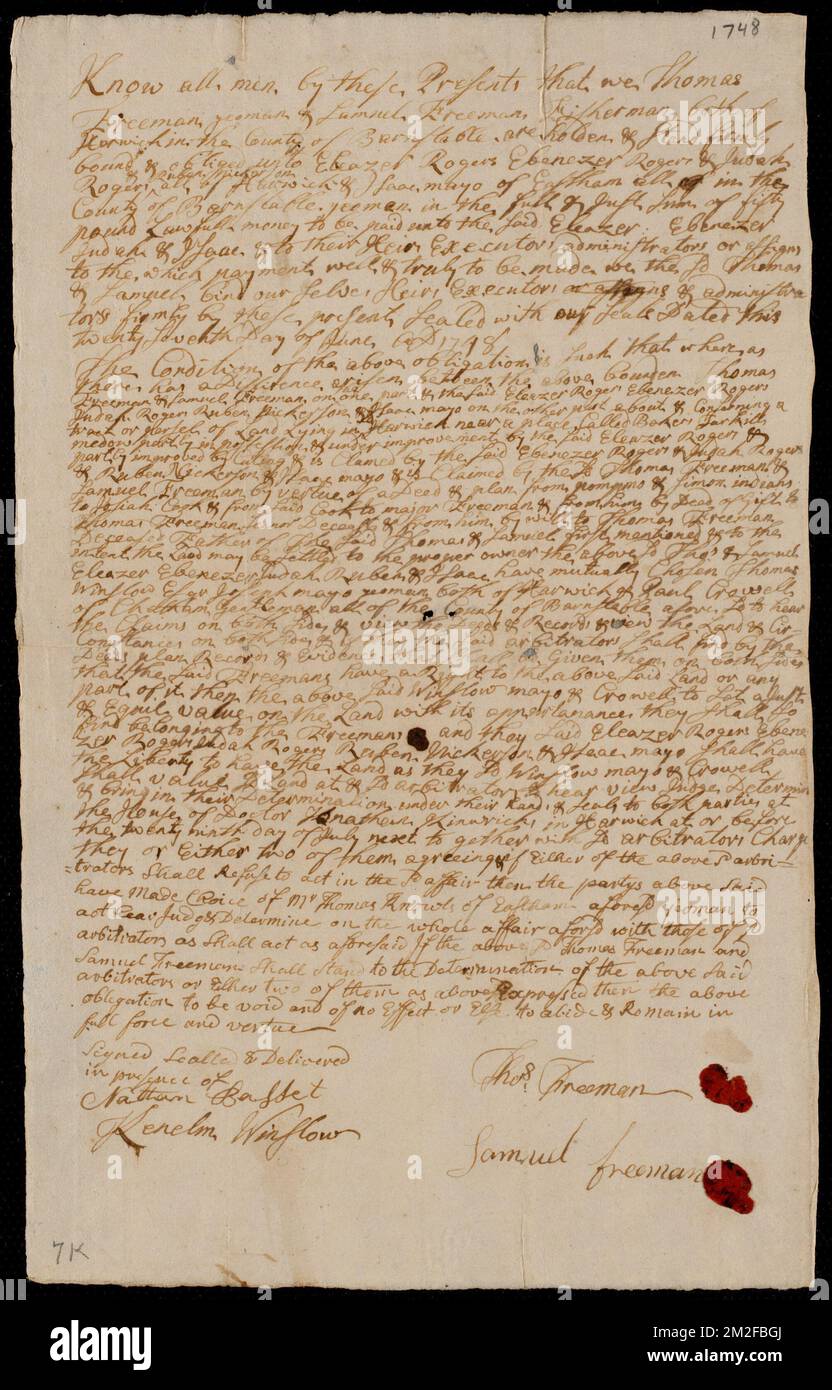 1748
Know all men by these Presents that we Thomas
Freeman yeoman & Samuel Freeman Fisherman both of
Harwich in the County of Barnstable are holden & stand firmly
bound & obliged unto Eleazer Rogers Ebenezer Rogers & Judah
& Ruben Nickerson
Rogers all of Harwich & Isaac mayo of Eastham all in the
County of Barnstable yeomen in the full & Just sum of fifty
pound Lawfull money to be paid unto the said Eleazer Ebenezer
Judah & Isaac & to their Heirs Executors administrators or assigns
to the which payment well & truly to be made we the sd Thomas
& Samuel bind our selves Heirs Executors & administra
tors firmly by these presents Sealed with our seals Dated this
twenty seventh Day of June AD 1748
The Condition of the above obligation is such that where as
there has a Difference arisen between the above bounden Thomas
Freeman & Samuel Freeman on one part & the said Eleazer Rogers Ebenezer Rogers
Judah Rogers Ruben Nickerson & Isaac mayo on the other part about & Conserning a
tract or parsel of Land Lying in Harwich near a place Called Bakers
medow partly in possession & under improvement by the said Eleazer Rogers &
partly improved by & is Clamed by the said Ebenezer Rogers & Judah Rogers
& Ruben Nickerson & Isaac mayo & is Claimed by the sd Thomas Freeman &
Samuel Freeman by vertue of a Deed & plan from pompmo & Simon indians
to Josiah Cook & from said Cook to major Freeman & from him by Deed of Gift to
Thomas Freeman Deceasd & from him by will to Thomas Freeman
Deceased Father of the said Thomas & Samuel first mentioned & to the
intent the Land may be settled to the proper owner the above sd Thos & Samuel
Eleazer Ebenezer Judah Ruben & Isaac have mutually Chosen Thomas
Winslow Esqr Joseph mayo yeoman both of Harwich & Paul Crowell
of Chatham Gentleman all of the County of Barnstable afore sd to hear
the Claims on both sides & view the Deeds & Records & view the Land & Cir-
Comstances on both sides & if the said arbitrators shall find by the
Deeds plan Records & Evidences that shall be Given them on both sides
that the said Freemans have a Right to the above said Land or any
part of it then the above said Winslow mayo & Crowell to Set a Just
& Equil value on the Land with its appertanances they shall so
find belonging to the Freemans and they said Eleazer Rogers Ebene
zer Rogers Judah Rogers Ruben Nickerson & Isaac mayo shall have
the Liberty to have the Land as they sd Winslow mayo & Crowell
shall value sd Land at & sd arbitrators hear view Judge Determin
& bring in their Determination under their hands & seals to both parties at
the House of Doctor Jonathan Kinwricks in Harwich at or before
the twenty ninth day of July next to gether with sd arbitrators Charge
they or Either two of them agreeing & if Either of the above sd arbi-
=trators Shall Refuse to act in the sd affair then the partys above said
have Made Choice of Mr Thomas Knowls of Eastham aforesd yeoman to
act hear Judge & Determine on the whole affair aforsd with those of sd
arbitrators as shall act as aforesaid If the above sd Thomas Freeman and
Samuel Freeman Shall Stand to the Determination of the above said
arbitrators or Either two of them as above Expressed then the above
obligation to be void and of no Effect or Els to abide & Remain in
full force and vertue
Signed Sealled & Delivered
in presence of
Nathan Basset
Kenelm Winslow
Thos. Freeman
Samuel freeman
7K
alamy
Image ID: 2M2FBGJ
www.alamy.com